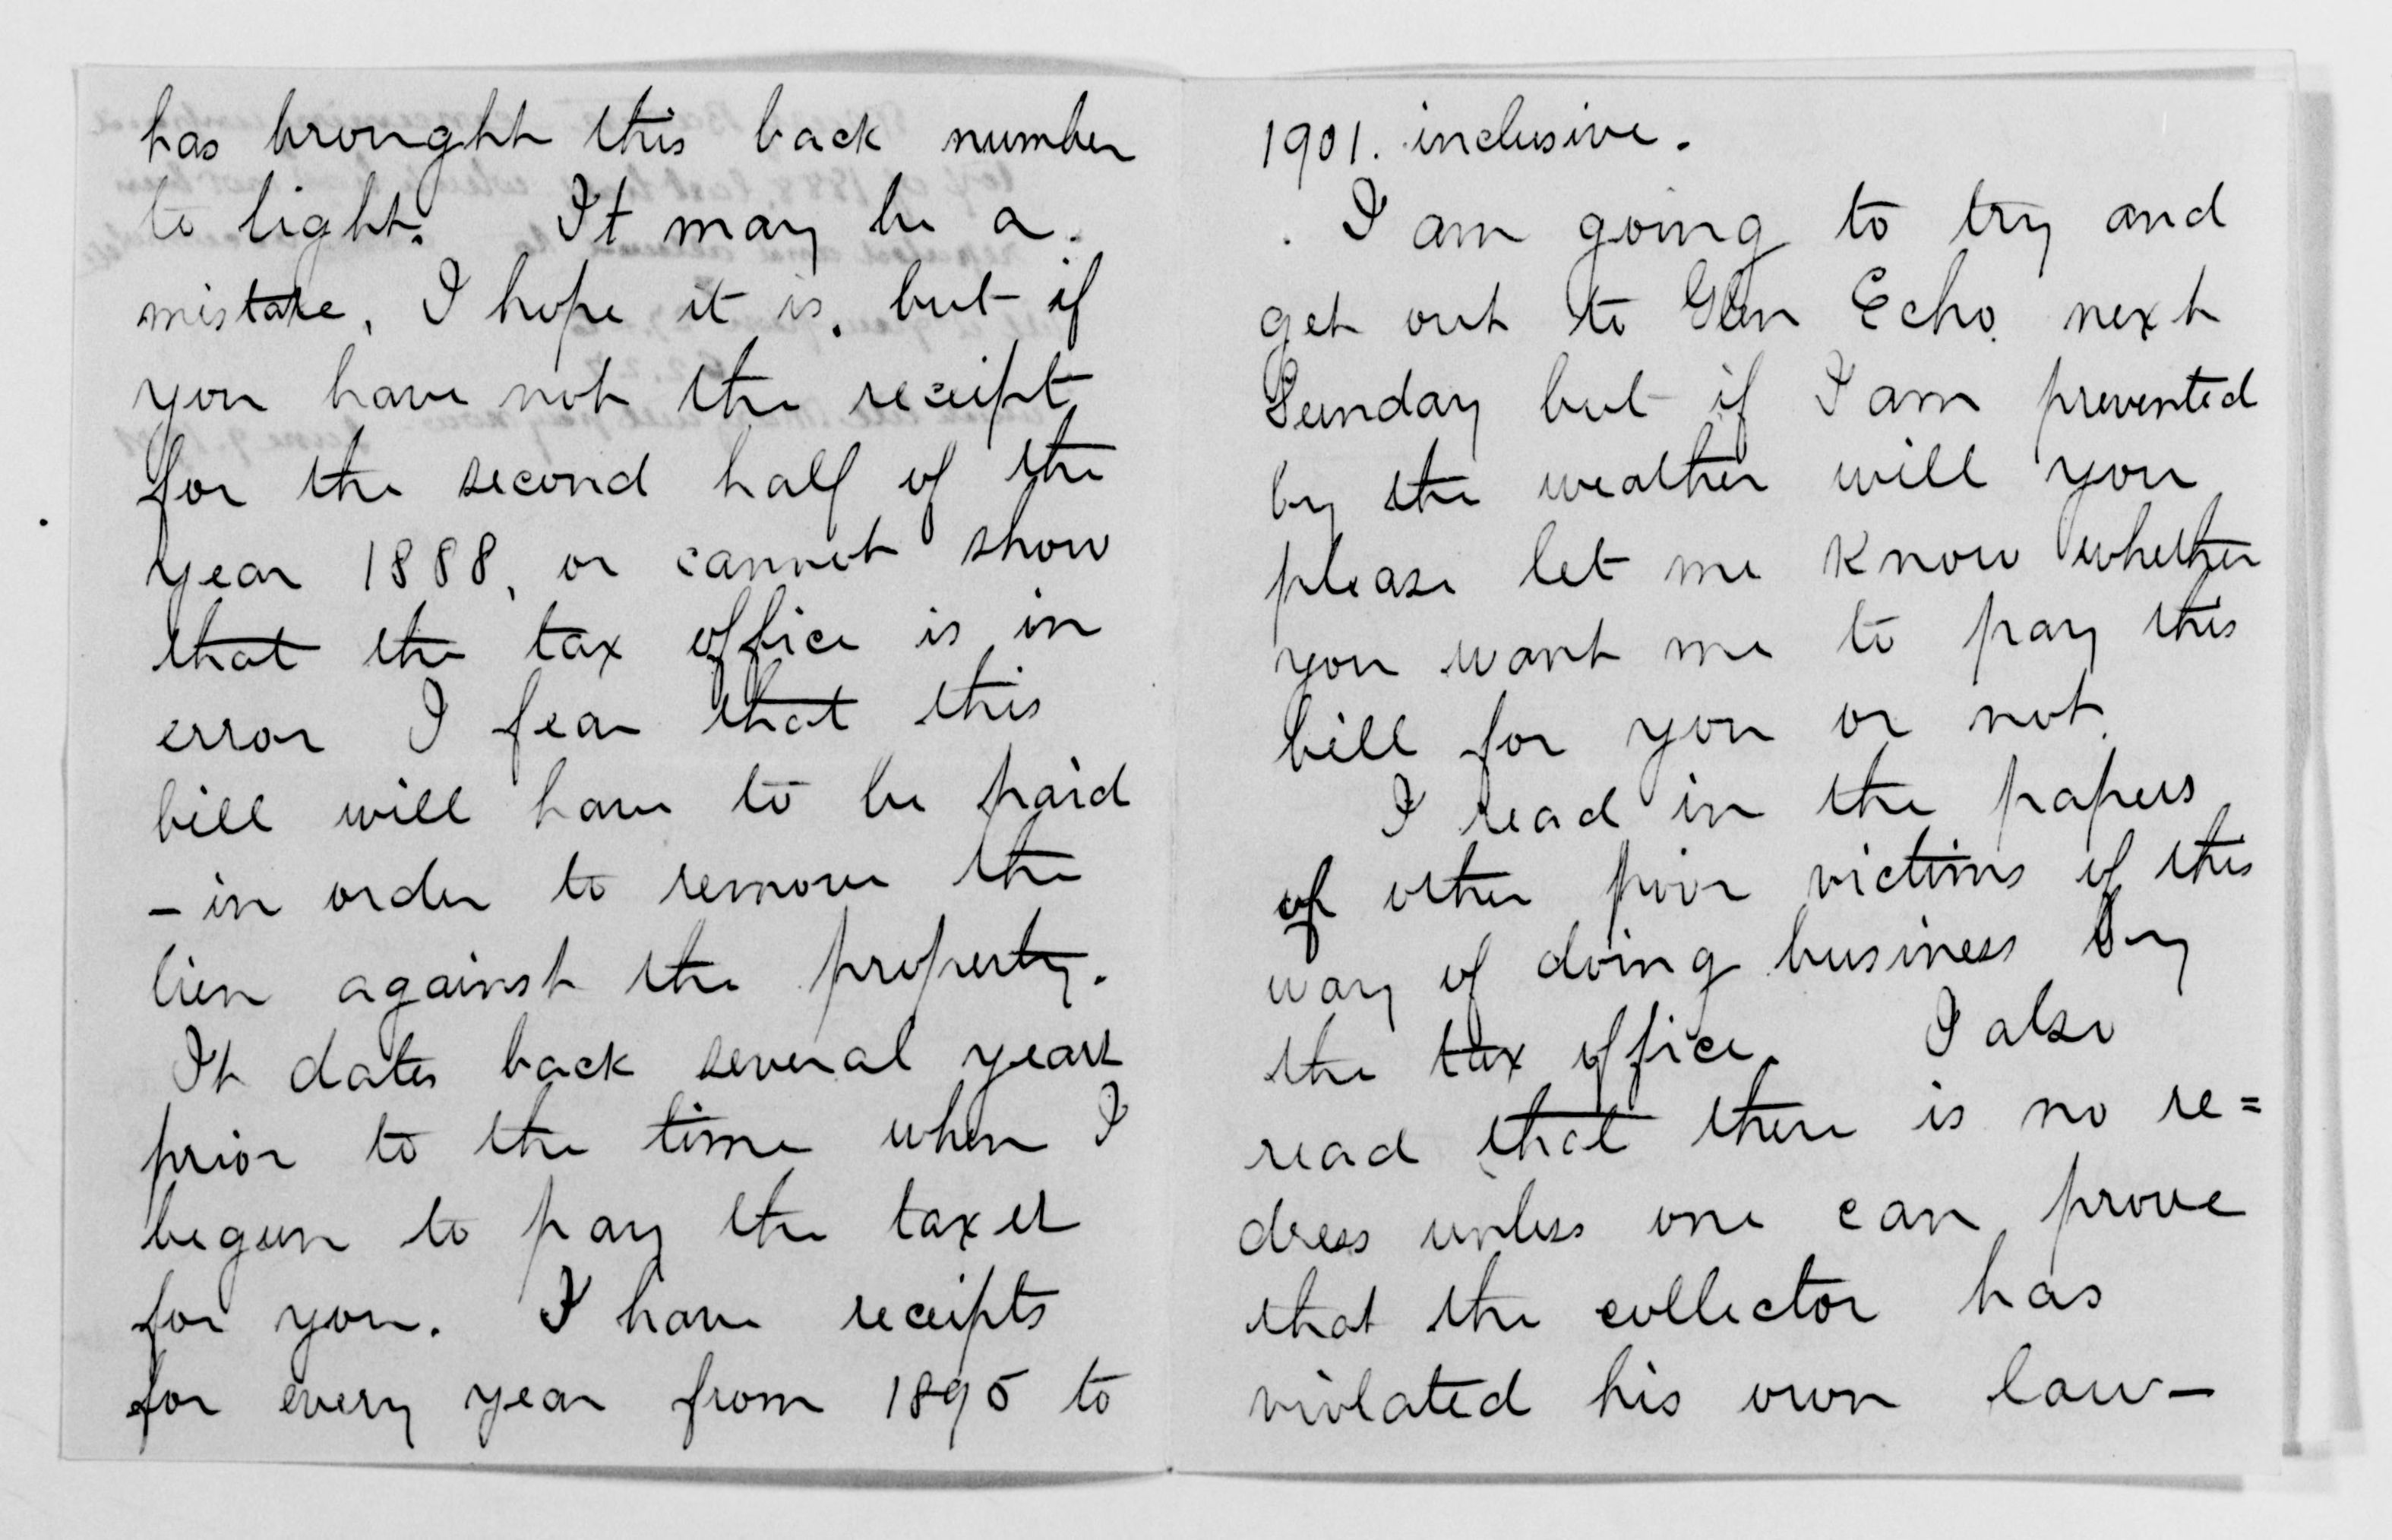 has brought this back number
to light. It may be a
mistake, I hope it is, but if
you have not the receipt
for the second half of the
year 1888, or cannot show
that the tax office is in
error I fear that this
bill will have to be paid
- in order to remove the
lien against the property.
It dates back several years
prior to the time when I
begun to pay the taxes
for you. I have receipts
for every year from 1895 to
1901. inclusive.
I am going to try and
get out to Glen Echo next
Sunday but if I am prevented
by the weather will you
please let me know whether
you want me to pay this
bill for you or not.
I read in the papers
of other poor victims of this
way of doing business by
the tax office. I also
read that there is no re=
dress unless one can prove
that the collector has
violated his own law-